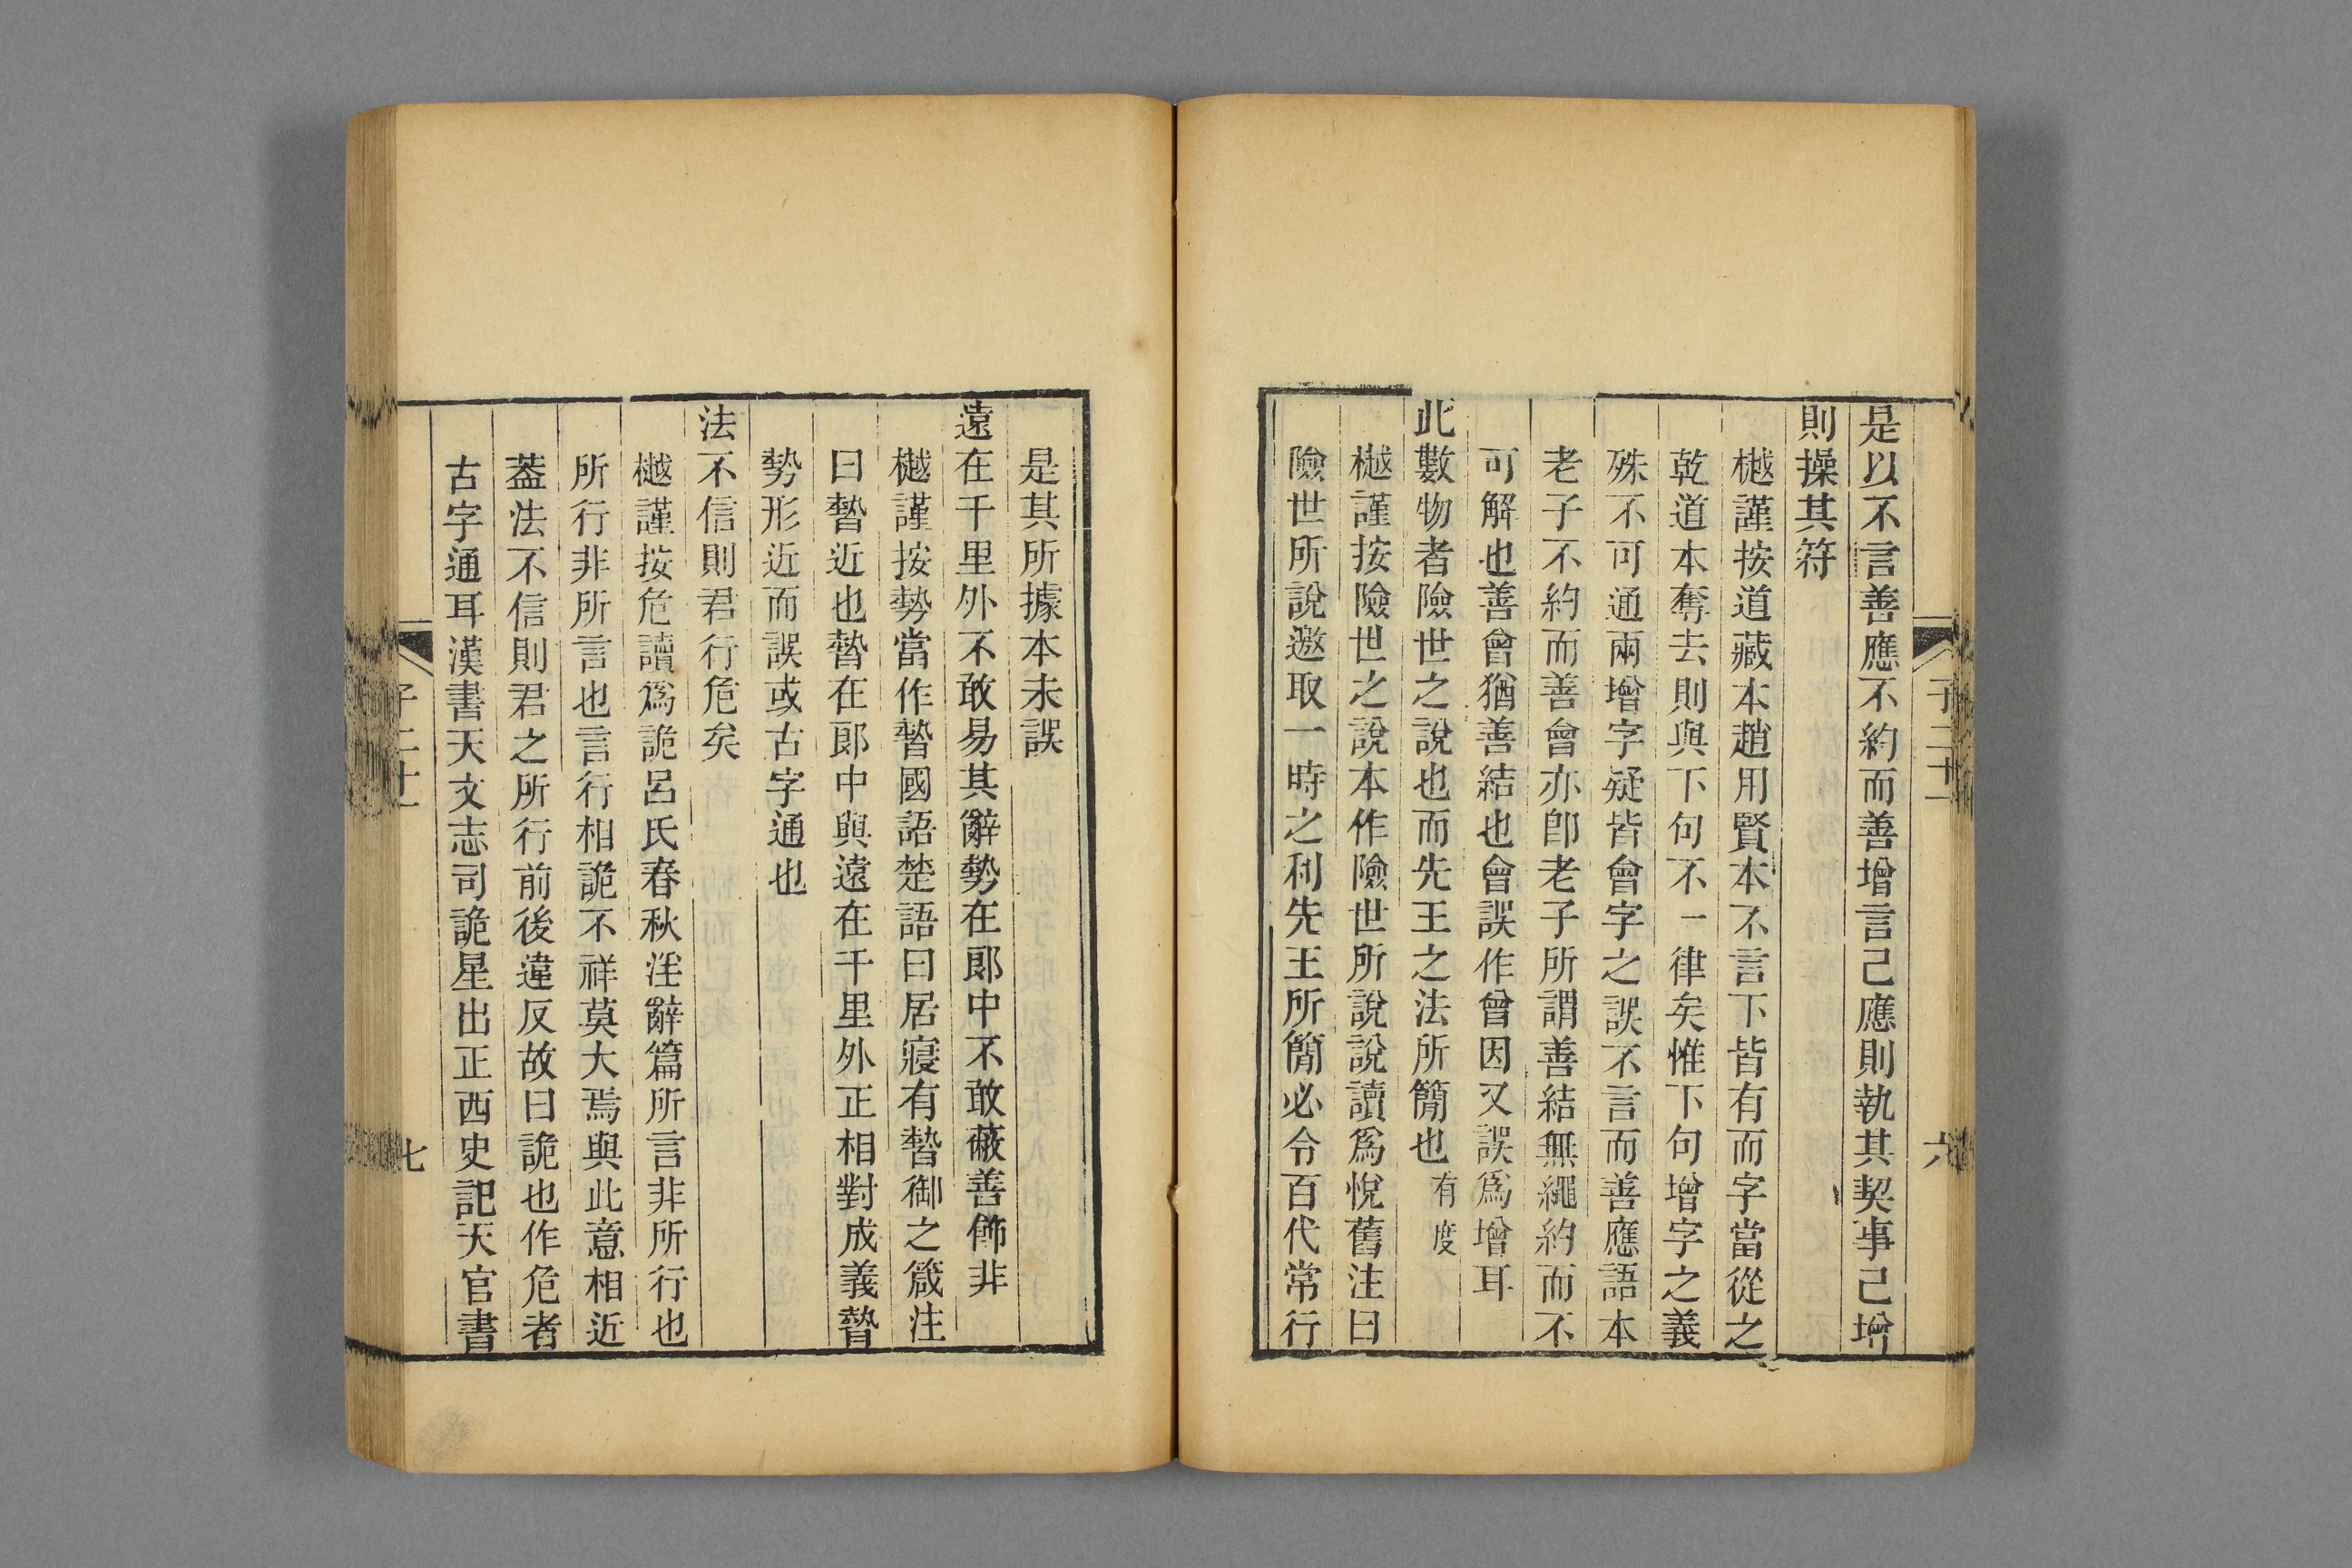 是以不言善應不約而善增言己應則執其契事己增
則操其符
樾謹按道藏本趙用賢本不言下皆有而字當從之
乾道本奪去則與下句不一律矣惟下句增字之義
殊不可通兩增字疑皆會字之誤不言而善應語本
老子不約而善會亦卽老子所謂善結無繩約而不
可解也善會猶善結也會誤作曾因又誤爲增耳
此數物者險世之說也而先王之法所簡也有度
樾謹按險世之說本作險世所說說讀爲悅舊注曰
險世所說邀取一時之利先王所簡必令百代常行
子二十一
六
是其所據本未誤
遠在千里外不敢易其辭勢在郎中不敢蔽善飾非
樾謹按勢當作暬國語楚語曰居寢有暬御之箴注
曰暬近也暬在郎中與遠在千里外正相對成義暬
勢形近而誤或古字通也
法不信則君行危矣
樾謹按危讀爲詭呂氏春秋淫辭篇所言非所行也
所行非所言也言行相詭不祥莫大焉與此意相近
葢法不信則君之所行前後違反故曰詭也作危者
古字通耳漢書天文志司詭星出正西史記天官書
子二十一
七